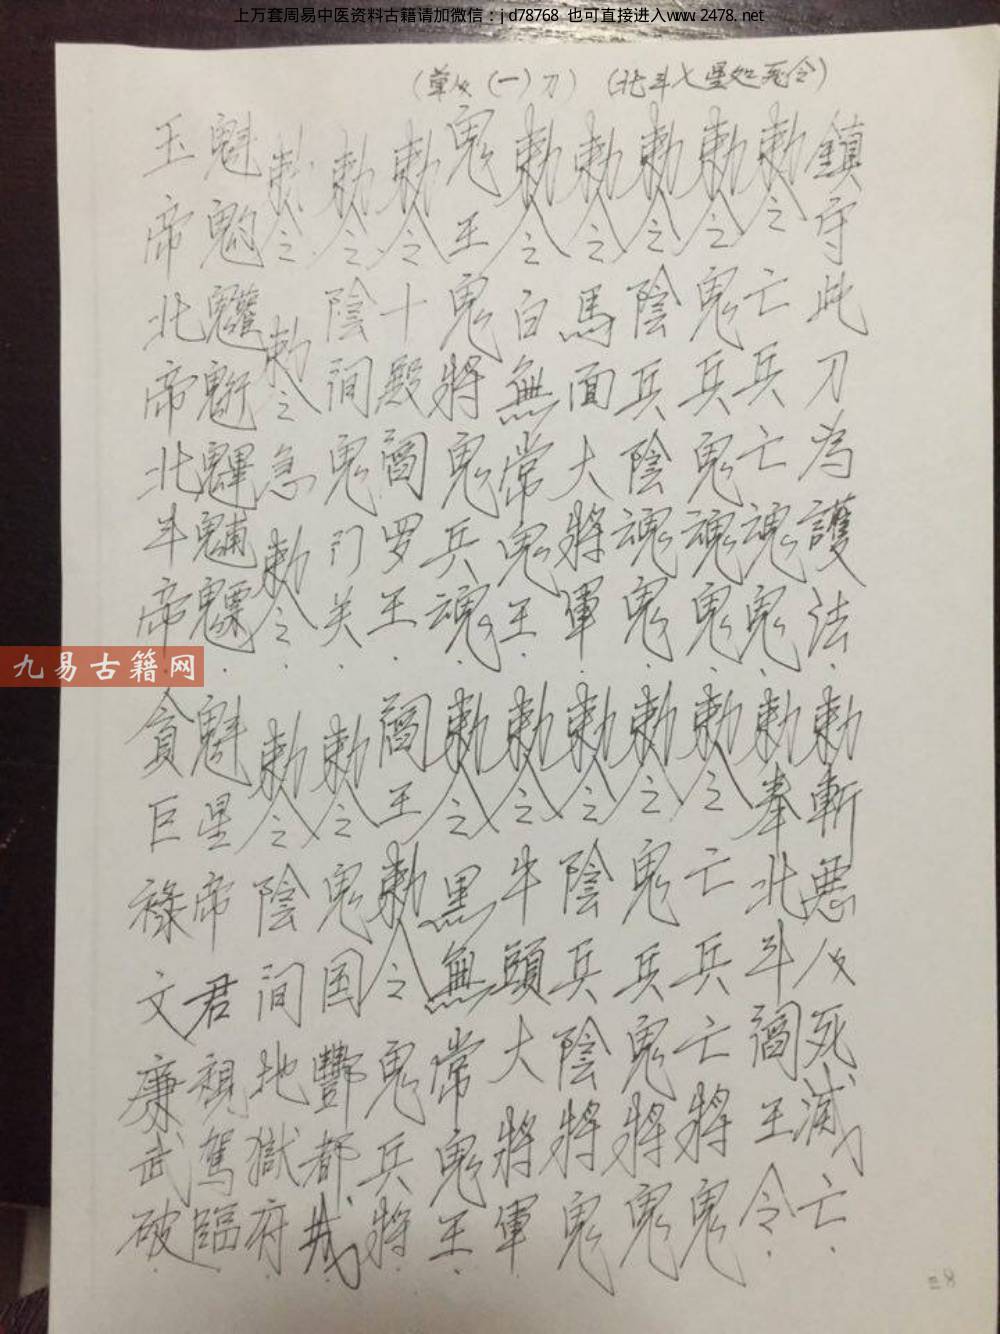 上万套周易中医资料古籍请加微信：jd78768 也可直接进入www.2478.net
（一）刀）（北斗七星如死令）
鎮守此刀為護法．勅斬惡人死滅亡．
勅令之亡兵亡魂鬼．勅奉北斗閻王令．
勅令之鬼兵鬼魂鬼．勅令之亡兵亡將鬼．
勅令之陰兵陰魂鬼．勅令之鬼兵鬼將鬼．
勅令之馬面大將軍．勅令之陰兵陰將鬼．
勅令之白無常鬼王．勅令之牛頭大將軍．
鬼王鬼將鬼兵魂．勅令之黑無常鬼王．
勅令之十殿閻罗王．閻王勅令之鬼兵將．
勅令之陰間鬼门关．勅令之鬼国酆都城．
勅令之勅令之急勅令之．勅令之陰間地獄府．
魁魒．魁星帝君親駕臨．
玉帝北帝北斗帝．貪巨祿文廉武破．
九易古籍网